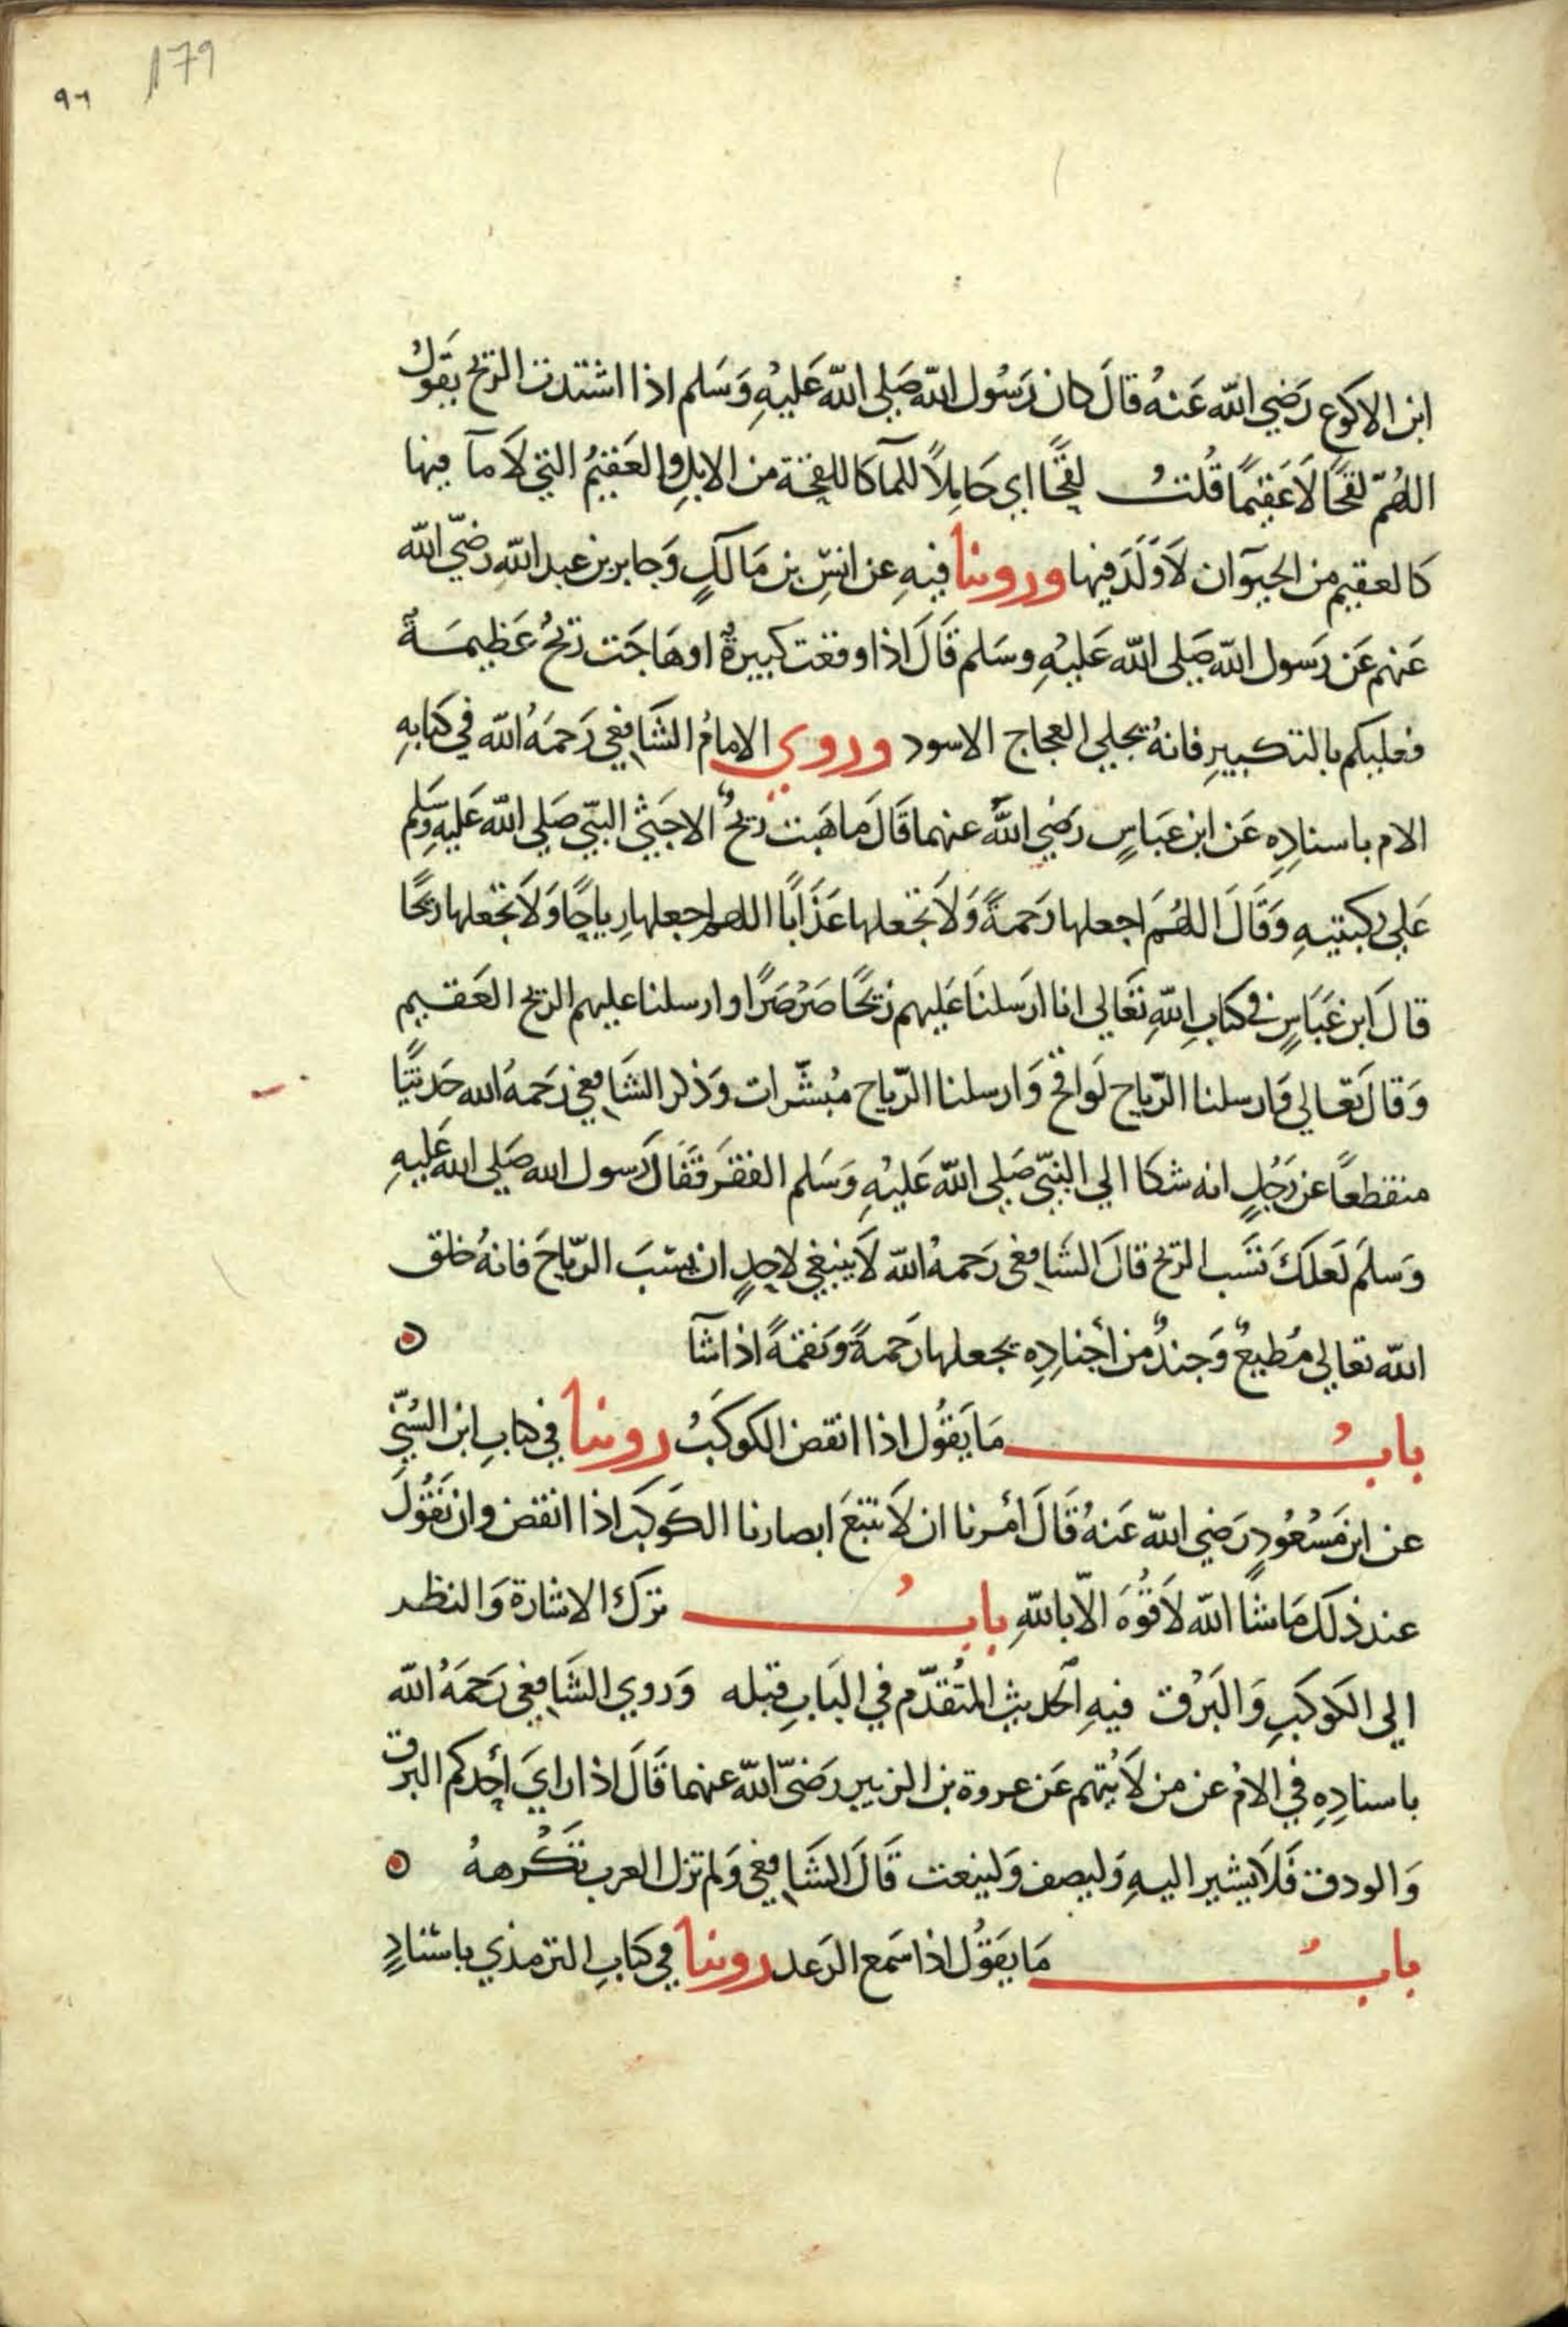 179
٩٦
ابن الاكوع رَضِي الله عَنهُ قالَ كان رَسُول الله صَلى الله عَليهِ وَسَلم اذا اشتدت الريح يقولُ
اللهُمّ لقحًا لَا عَقيمًا قُلتُ لقحًا اي حَامِلًا للمآ كاللقحة من الابلِ والعَقيمُ التي لَا مآ فيها
كالعقيم من الحيوان لَا وَلَدَ فيها وروينا فيهِ عن انسِ بن مَالكٍ وَجابر بن عبد الله رضي الله
عَنهم عَن رَسول الله صَلى الله عَليهِ وسَلم قَالَ اذا وقعت كبيرةٌ او هَاجَت ريحٌ عَظيمَةٌ
فعليكم بالتكبيرِ فانهُ يجلي العجاج الاسود وروي الامامُ الشَافعي رَحمَهُ الله في كتابهِ
الام باسنادِه عَن ابن عبَاسٍ رَضي اللهُ عنهما قَالَ مَا هَبت ريحٌ الا جَثى النبّي صَلى الله عَليهِ وسَلم
عَلي ركبتيهِ وَقَالَ اللهُمَ اجعلها رَحمةً وَلَا تجعلها عَذَابًا اللهم اجعلها رِياحًا وَلَا تجعلها ريحًا
قالَ ابن عَبَاسٍ في كتابِ اللهِ تعَالي انا ارَسلنَا عَليهم ريحًا صَرْصَرًا وارسلنا عليهم الريح العَقيم
وَقالَ تعَالي وَارسلنا الرّياح لَواقح وَارسلنا الرّياح مُبشّرات وَذكر الشَافعي رَحمَهُ الله حَديثًا
منقطعًا عن رَجُلٍ انه شكا الي النبّي صَلي الله عَليهِ وَسَلم الفقرَ فقَالَ رَسول الله صَلي الله عَليهِ
وَسلَم لَعلكَ تسَب الريح قالَ الشَافعي رَحمهُ الله لَا ينبغي لاحدٍ ان يسَبَ الرّياحَ فانهُ خلق
الله تعالي مُطيعٌ وَجندٌ من أجنادِهِ يجعلها رَحمةً وَنقمةً اذا شآ
بابُ مَا يَقوُل اذا انقض الكوكَبُ روينا في كتابِ ابن السُنّي
عن ابن مَسْعُودٍ رَضي الله عَنهُ قَالَ أُمرنا ان لَا نتبعَ ابصارنا الكَوكبَ اذا انقض وان نَقُولَ
عند ذلك مَا شَا الله لَا قُوَةَ الاّ باللهِ بابُ ترك الاشارة وَالنظر
الي الكَوكَبِ وَالبَرْق فيهِ الحَديث المتُقدّم في البَابِ قبله وَروي الشَافعي رَحمَهُ الله
باسنادِهِ في الامُ عن من لَا يُتهم عَن عروة بن الزبير رَضيّ الله عنهما قَالَ اذا راي أحدكم البرق
وَالودق فَلَا يشير اليهِ وَليصف وَلينعت قَالَ الشَافعي وَلم تزل العرب تَكْرههُ
بابُ مَا يَقوُل اذا سَمع الرَعد روينا في كتابِ الترمذي باسْنادٍ